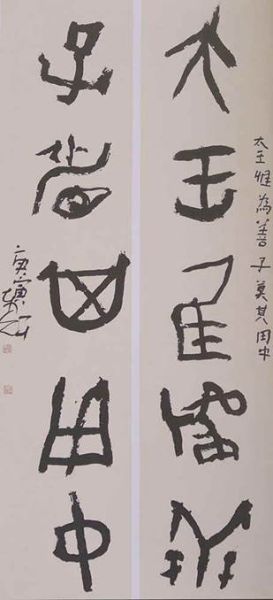 太王惟為善子莫其用中
大王隹為善
子莫其用中
庚寅